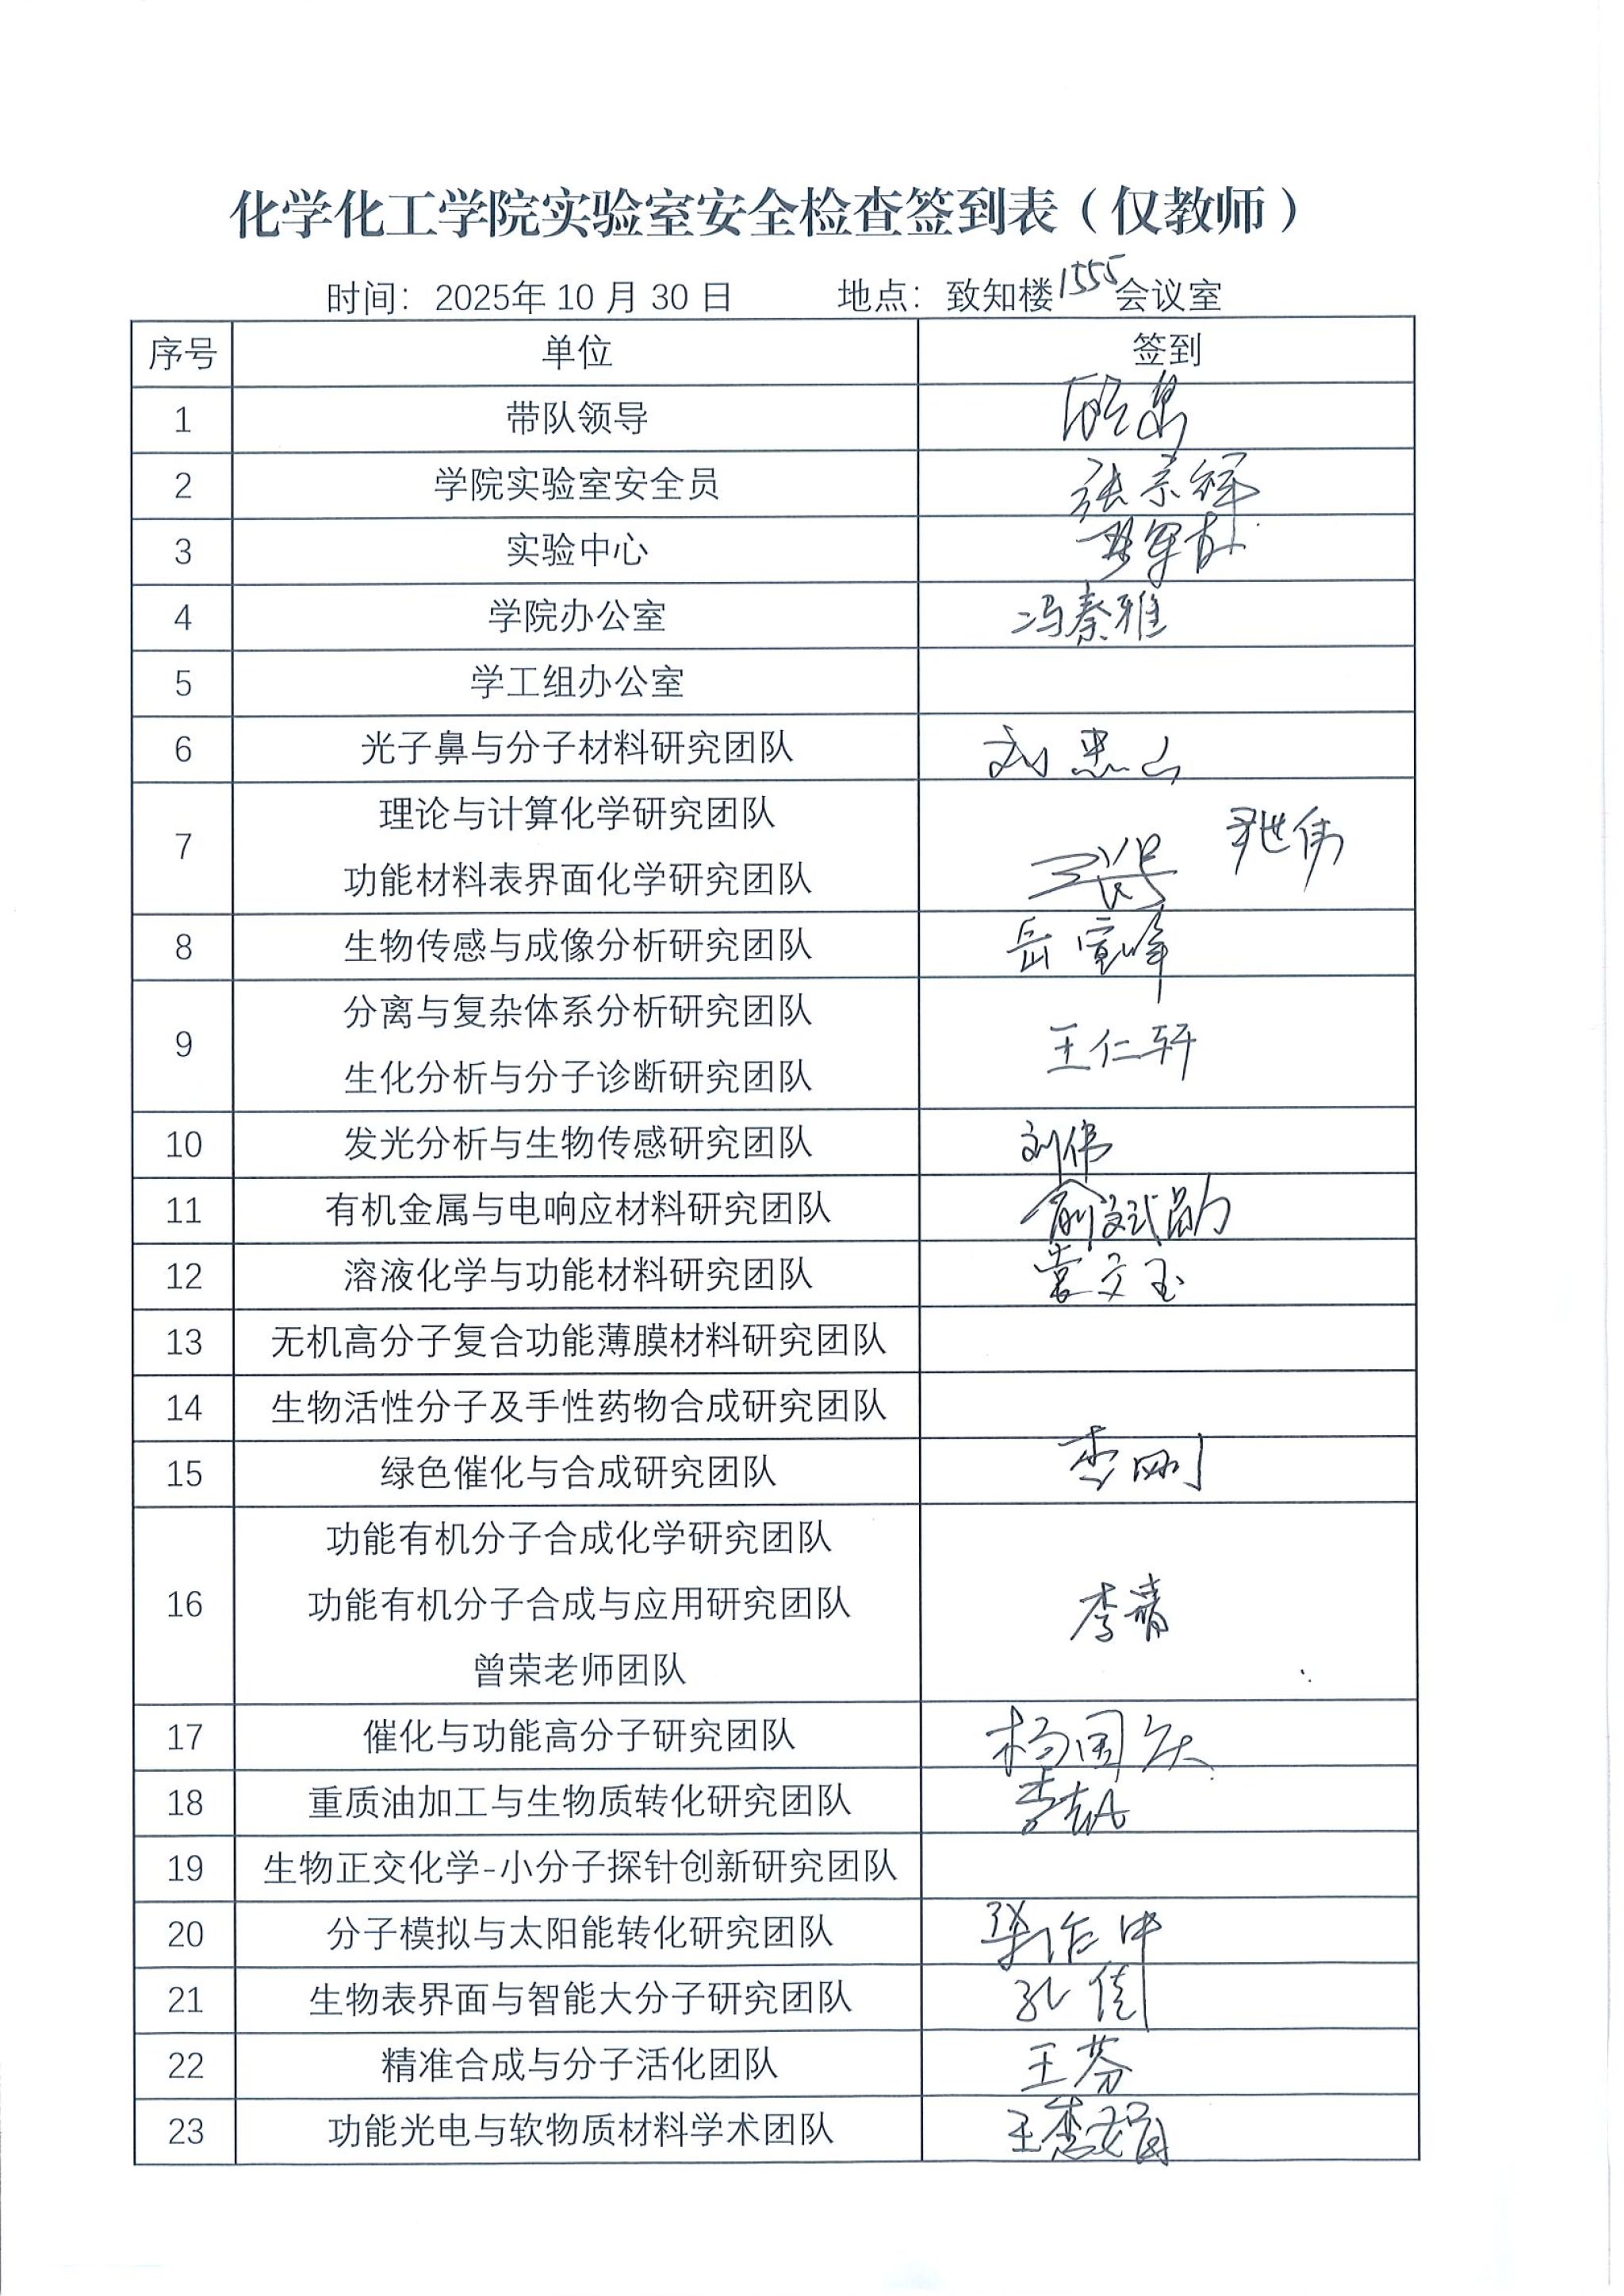 化学化工学院实验室安全检查签到表（仅教师）
时间：2025年 10 月 30 日 地点：致知楼1555会议室
序号 单位 签到
1 带队领导
2 学院实验室安全员 张宗辉
3 实验中心
4 学院办公室 冯秦雅
5 学工组办公室
6 光子鼻与分子材料研究团队 刘忠山
7 理论与计算化学研究团队
功能材料表界面化学研究团队 尹世伟
8 生物传感与成像分析研究团队 岳宣峰
9 分离与复杂体系分析研究团队
生化分析与分子诊断研究团队 王仁轩
10 发光分析与生物传感研究团队 刘伟
11 有机金属与电响应材料研究团队 俞斌勋
12 溶液化学与功能材料研究团队 袁文玉
13 无机高分子复合功能薄膜材料研究团队
14 生物活性分子及手性药物合成研究团队
15 绿色催化与合成研究团队 李刚
16 功能有机分子合成化学研究团队
功能有机分子合成与应用研究团队 李晴
曾荣老师团队
17 催化与功能高分子研究团队 杨国庆
18 重质油加工与生物质转化研究团队
19 生物正交化学-小分子探针创新研究团队
20 分子模拟与太阳能转化研究团队
21 生物表界面与智能大分子研究团队
22 精准合成与分子活化团队 王芬
23 功能光电与软物质材料学术团队